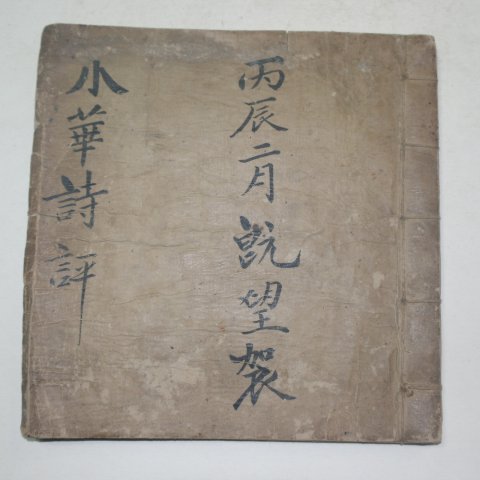 丙辰二月旣望袈
小華詩評